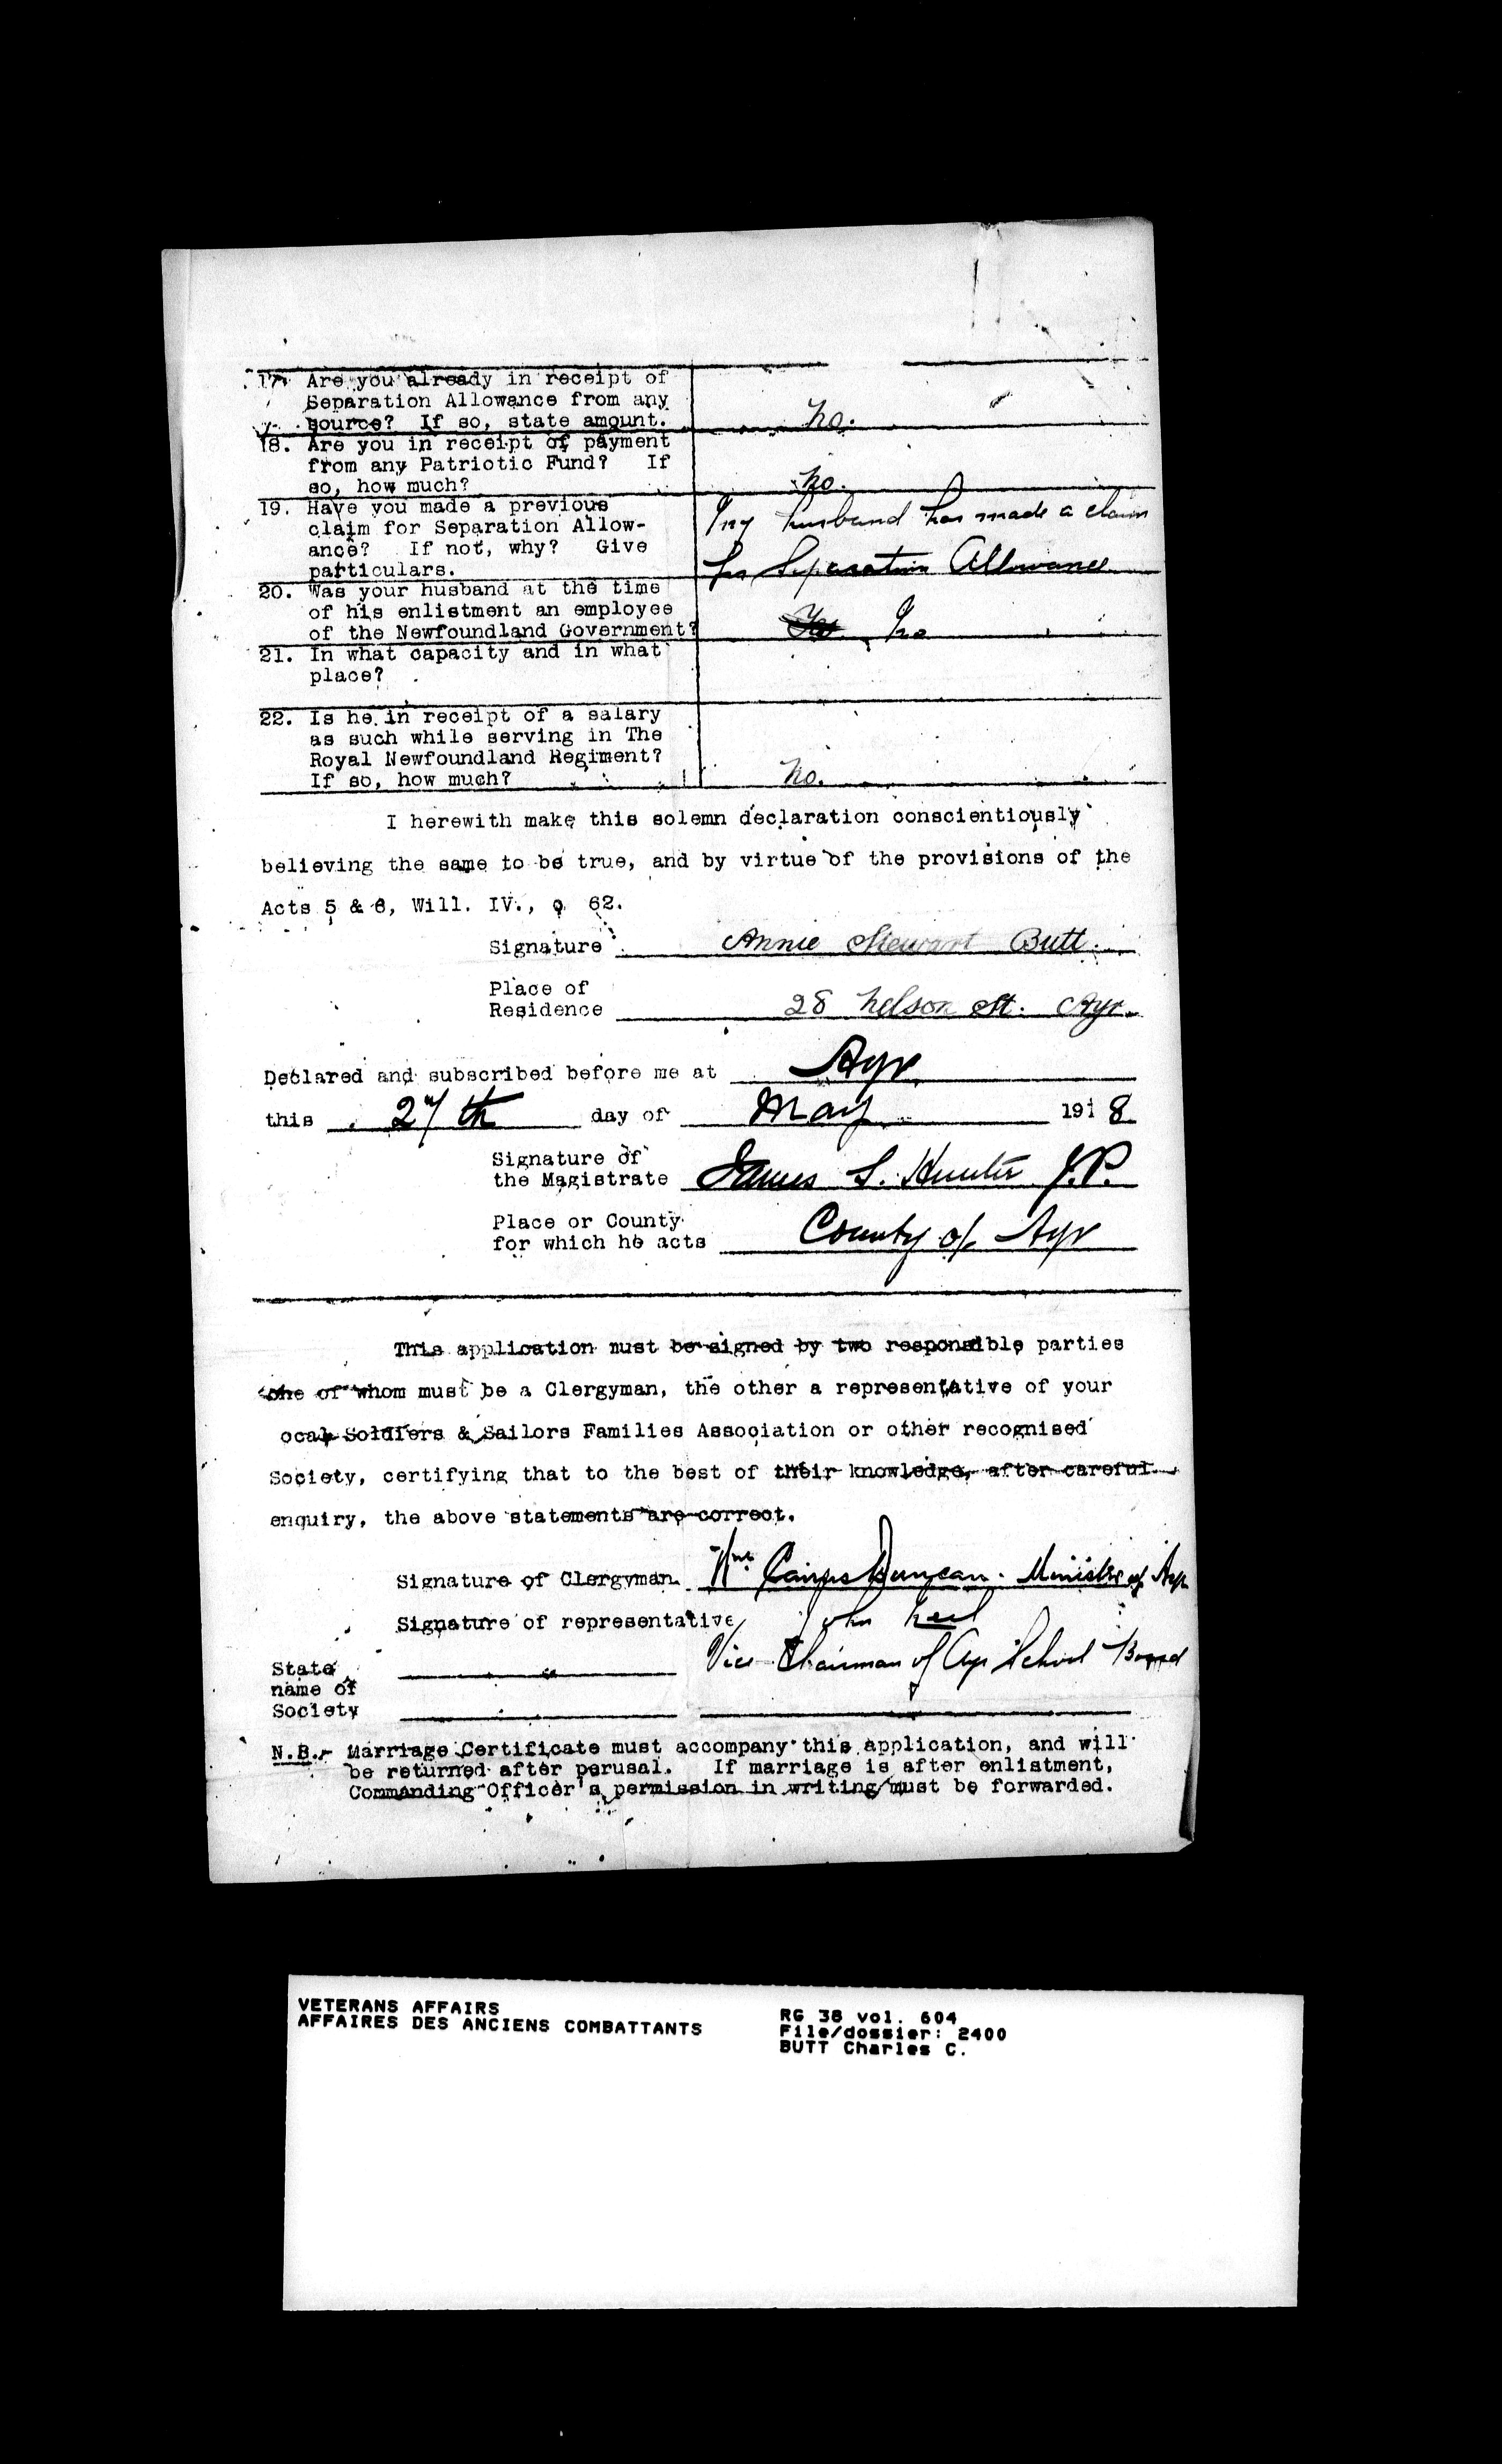 17. Are you already in receipt of
Separation Allowance from any
source? If so, state amount.
no.
18. Are you in receipt of payment
from any Patriotic Fund? If
so, how much?
no.
19. Have you made a previous
claim for Separation Allow-
ance? If not, why? Give
particulars.
My husband has made a claim
for Separation Allowance
20. Was your husband at the time
of his enlistment an employee
of the Newfoundland Government?
No
21. In what capacity and in what
place?
22. Is he in receipt of a salary
as such while serving in The
Royal Newfoundland Regiment?
If so, how much?
no.
I herewith make this solemn declaration conscientiously
believing the same to be true, and by virtue of the provisions of the
Acts 5 & 6, Will. IV., c 62.
Signature Annie Stewart Butt.
Place of
Residence 28 Nelson St. Ayr.
Declared and subscribed before me at Ayr
this 27th day of May 1918
Signature of
the Magistrate James S. Hunter J.P.
Place or County
for which he acts County of Ayr
This application must be signed by two responsible parties
one of whom must be a Clergyman, the other a representative of your
ocal Soldiers & Sailors Families Association or other recognised
Society, certifying that to the best of their knowledge, after careful
enquiry, the above statements are correct.
Signature of Clergyman. Wm Cairns Duncan. Minister of Ayr
Signature of representative John
Vice-Chairman of Ayr School Board
State
name of
Society
N.B.- Marriage Certificate must accompany this application, and will
be returned after perusal. If marriage is after enlistment,
Commanding Officer's permission in writing must be forwarded.
VETERANS AFFAIRS
AFFAIRES DES ANCIENS COMBATTANTS
RG 38 vol. 604
File/dossier: 2400
BUTT Charles C.